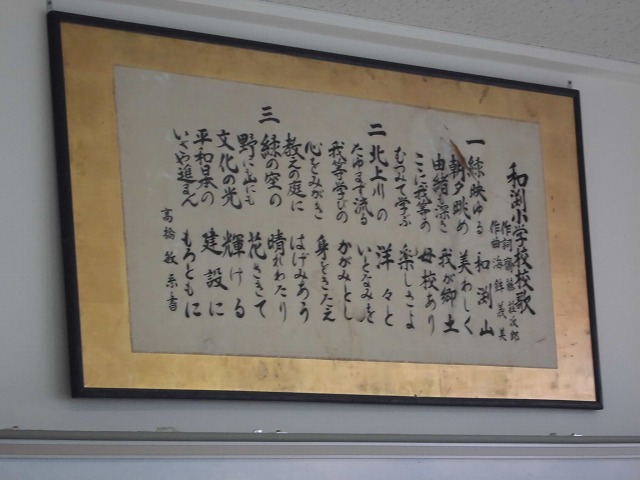 和渕小学校校歌
作詞 齋藤荘次郎
作曲 海鉾義美
一 緑映ゆる 和渕山
朝夕眺め 美わしく
由緒も深き 我が郷土
ここに我等の 母校あり
むつみて学ぶ 楽しさよ
二 北上川の 洋々と
たゆまず流る いとなみを
我等学びの かがみとし
心をみがき 身をきたえ
教えの庭に はげみあう
三 緑の空の 晴れわたり
野にも山にも 花さきて
文化の光 輝ける
平和日本の 建設に
いざや進まん もろともに
高橋敏 書